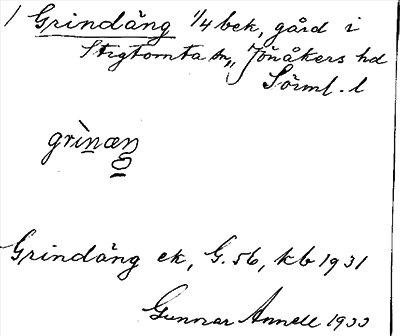 1 Grindäng 1/4 bek, gård i
Stigtomta sn, Jönåkers hd
Sörml. l
grìnæn
Grindäng ek, G. 56, kb 1931
Gunnar Annell 1933